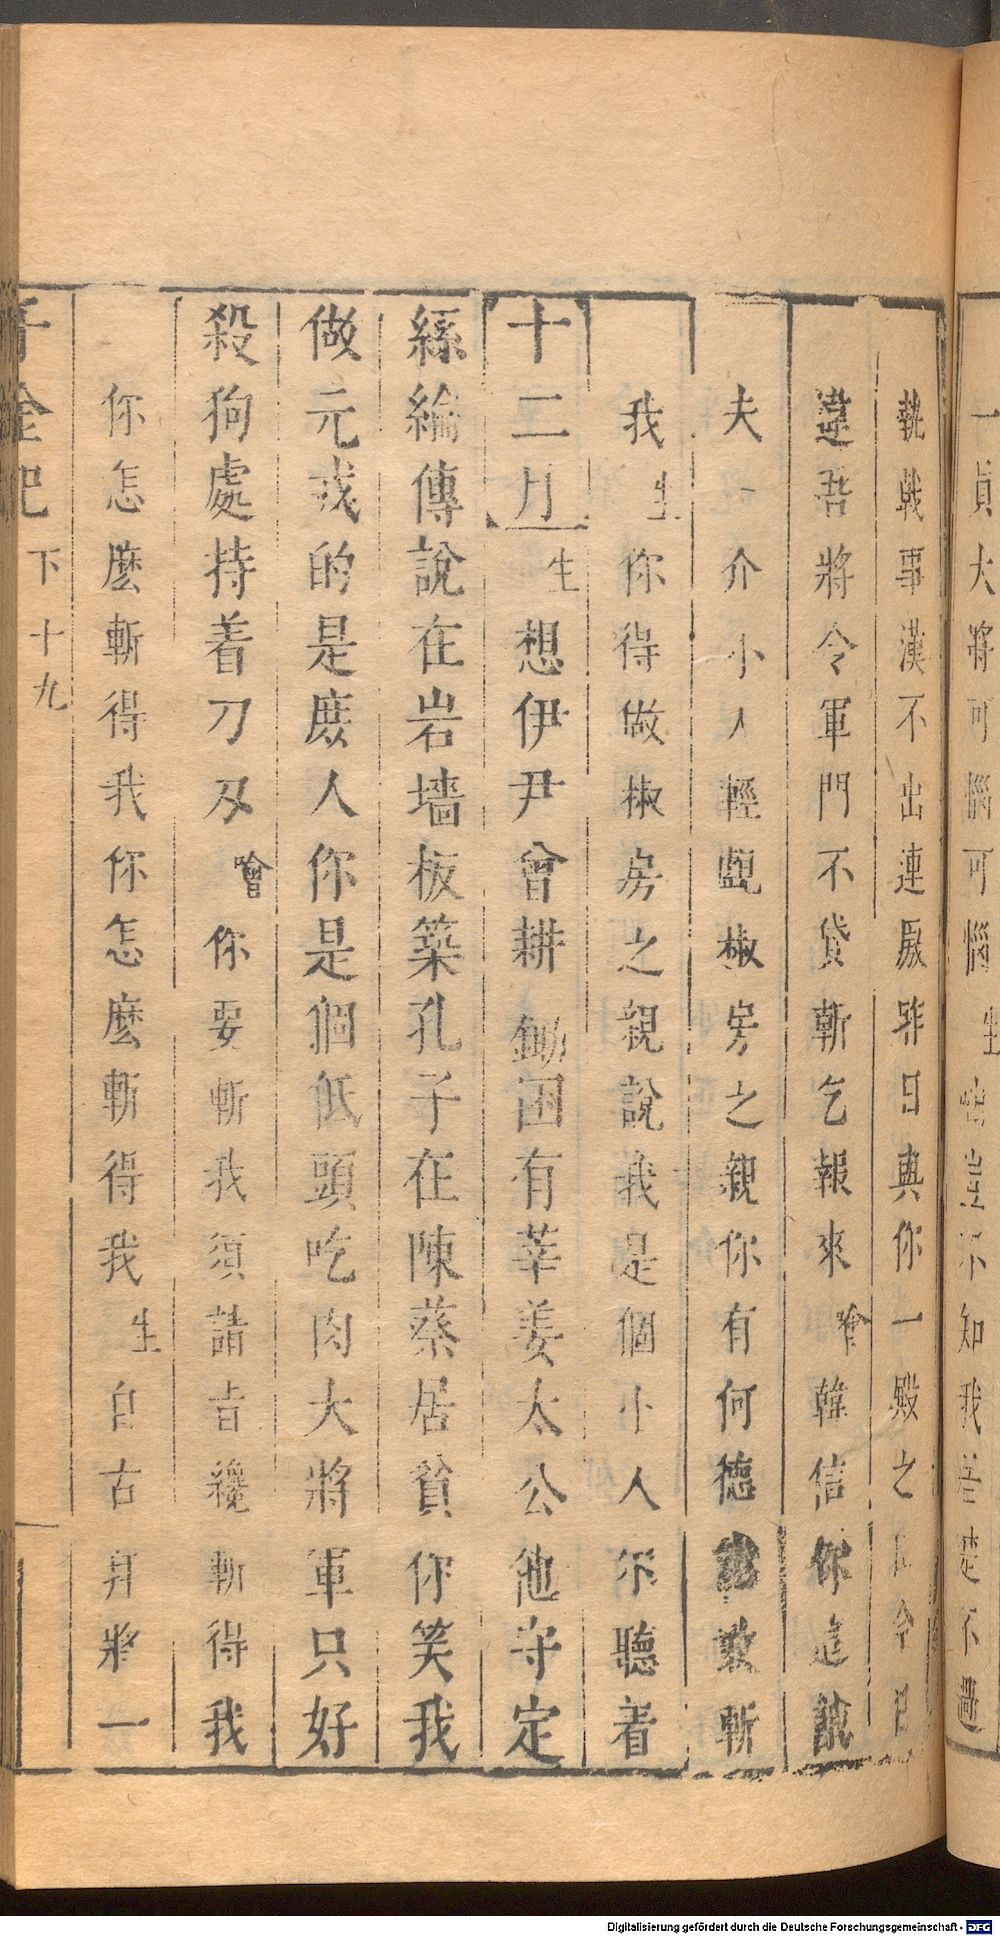 一員大將可惱可惱生
知我
執戟事漢不出連敖昨日與你一殿之臣今日
違吾將令軍門不貸斬乞報來噲韓信你這說
夫一介小人輕覷椒房之親你有何德敢斬
我生你得做椒房之親說我是個小人你聽着
十二月生想伊尹曾耕鋤困有莘姜太公他守定
絲綸傳說在岩墻板築孔子在陳蔡居貧你笑我
做元戎的是庶人你是個低頭吃肉大將軍只好
殺狗處持着刀刃噲你要斬我須請旨纔斬得我
你怎麽斬得我你怎麽斬得我生自古拜將一
千金記 下 十九
Digitalisierung gefördert durch die Deutsche Forschungsgemeinschaft - DFG